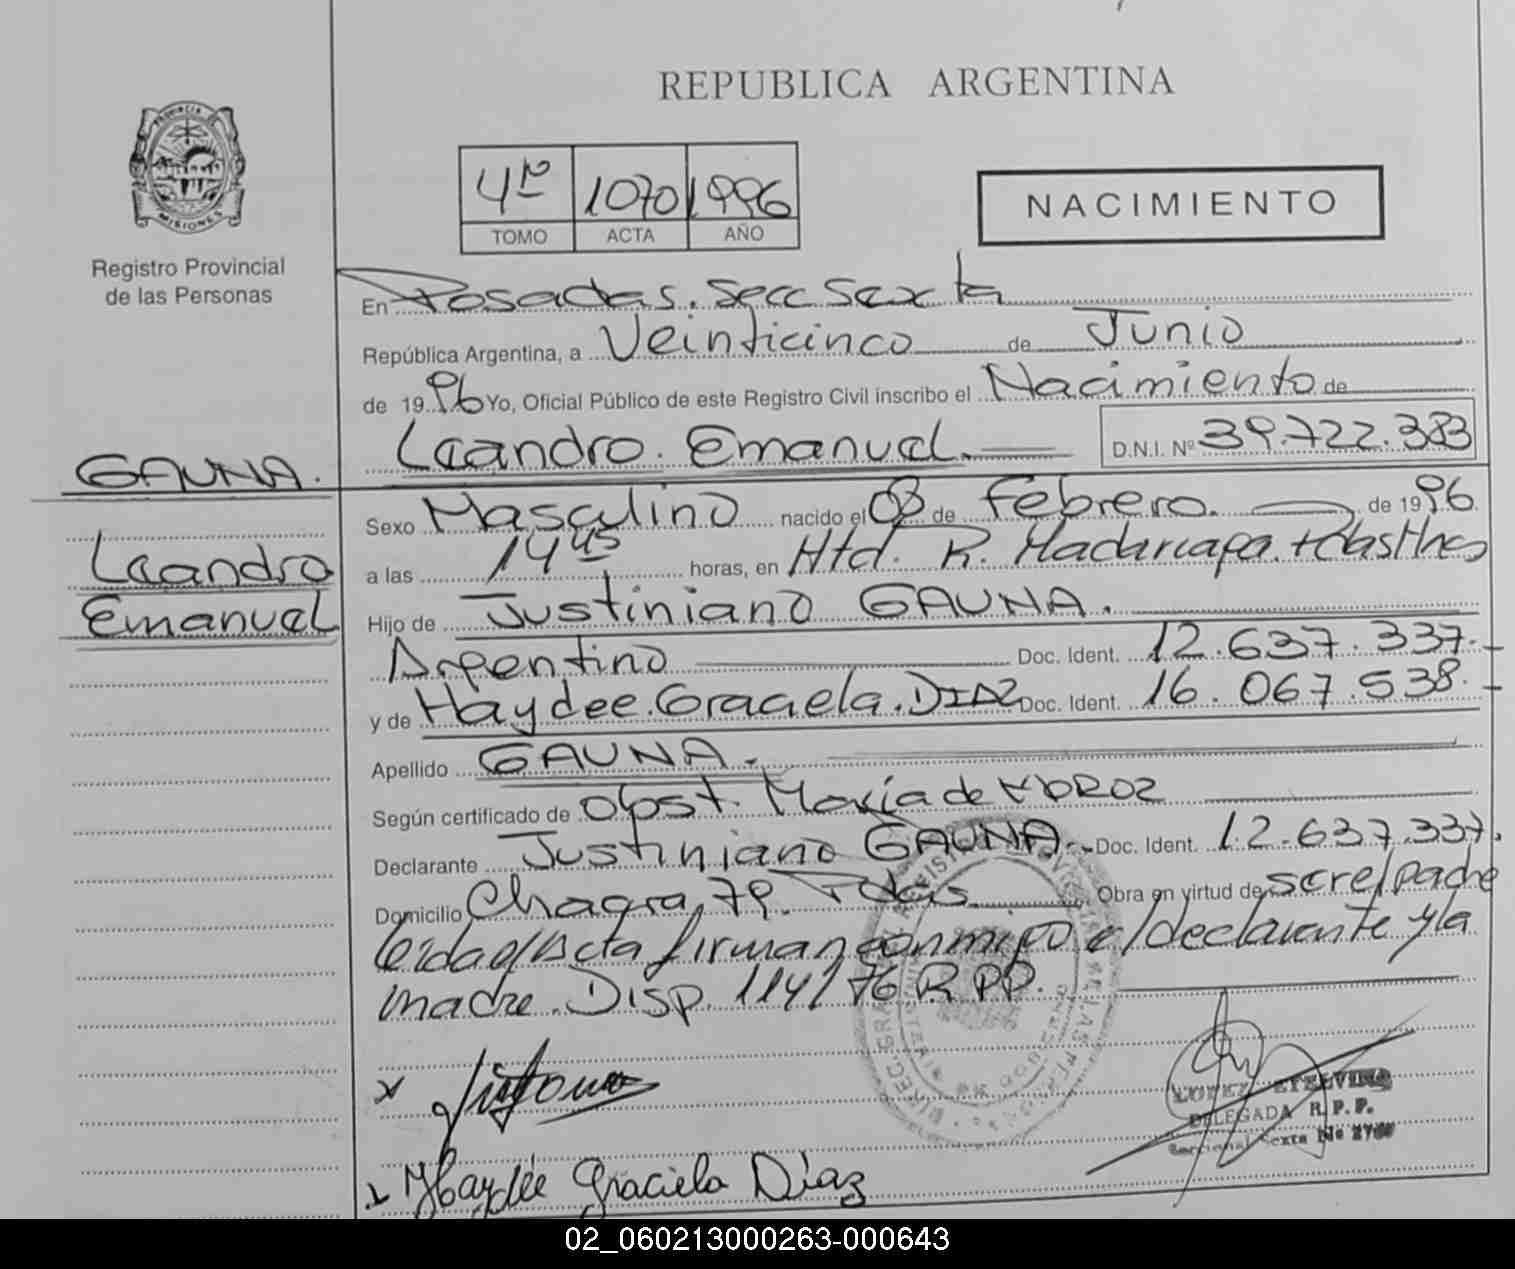 REPUBLICA ARGENTINA
PROVINCIA DE
MISIONES
Registro Provincial
de las Personas
4to 1070 1996
TOMO ACTA AÑO
NACIMIENTO
En Posadas. Secc Sexta
República Argentina, a Veinticinco de Junio
de 1996 Yo, Oficial Público de este Registro Civil inscribo el Nacimiento de
Leandro. Emanuel. D.N.I. Nº 39.722.383
GAUNA.
Leandro
Emanuel
Sexo Masculino nacido el 08 de Febrero. de 1996
a las 14 45 horas, en Htal. R. Madariaga.
Hijo de Justiniano GAUNA.
Argentino Doc. Ident. 12.637.337.-
y de Haydee. Graciela. DIAZ Doc. Ident. 16.067.538.-
Apellido GAUNA.
Según certificado de Obst. María de
Declarante Justiniano GAUNA. Doc. Ident. 12.637.337.
Domicilio Chacra 79. Pdas. Obra en virtud de ser el padre
leida el Acta firman conmigo el declarante y la
madre. Disp. 114/76 R.P.P.
LOPEZ ETELVINA
DELEGADA R. P. P.
Seccional Sexta
Haydée Graciela Díaz
02_060213000263-000643